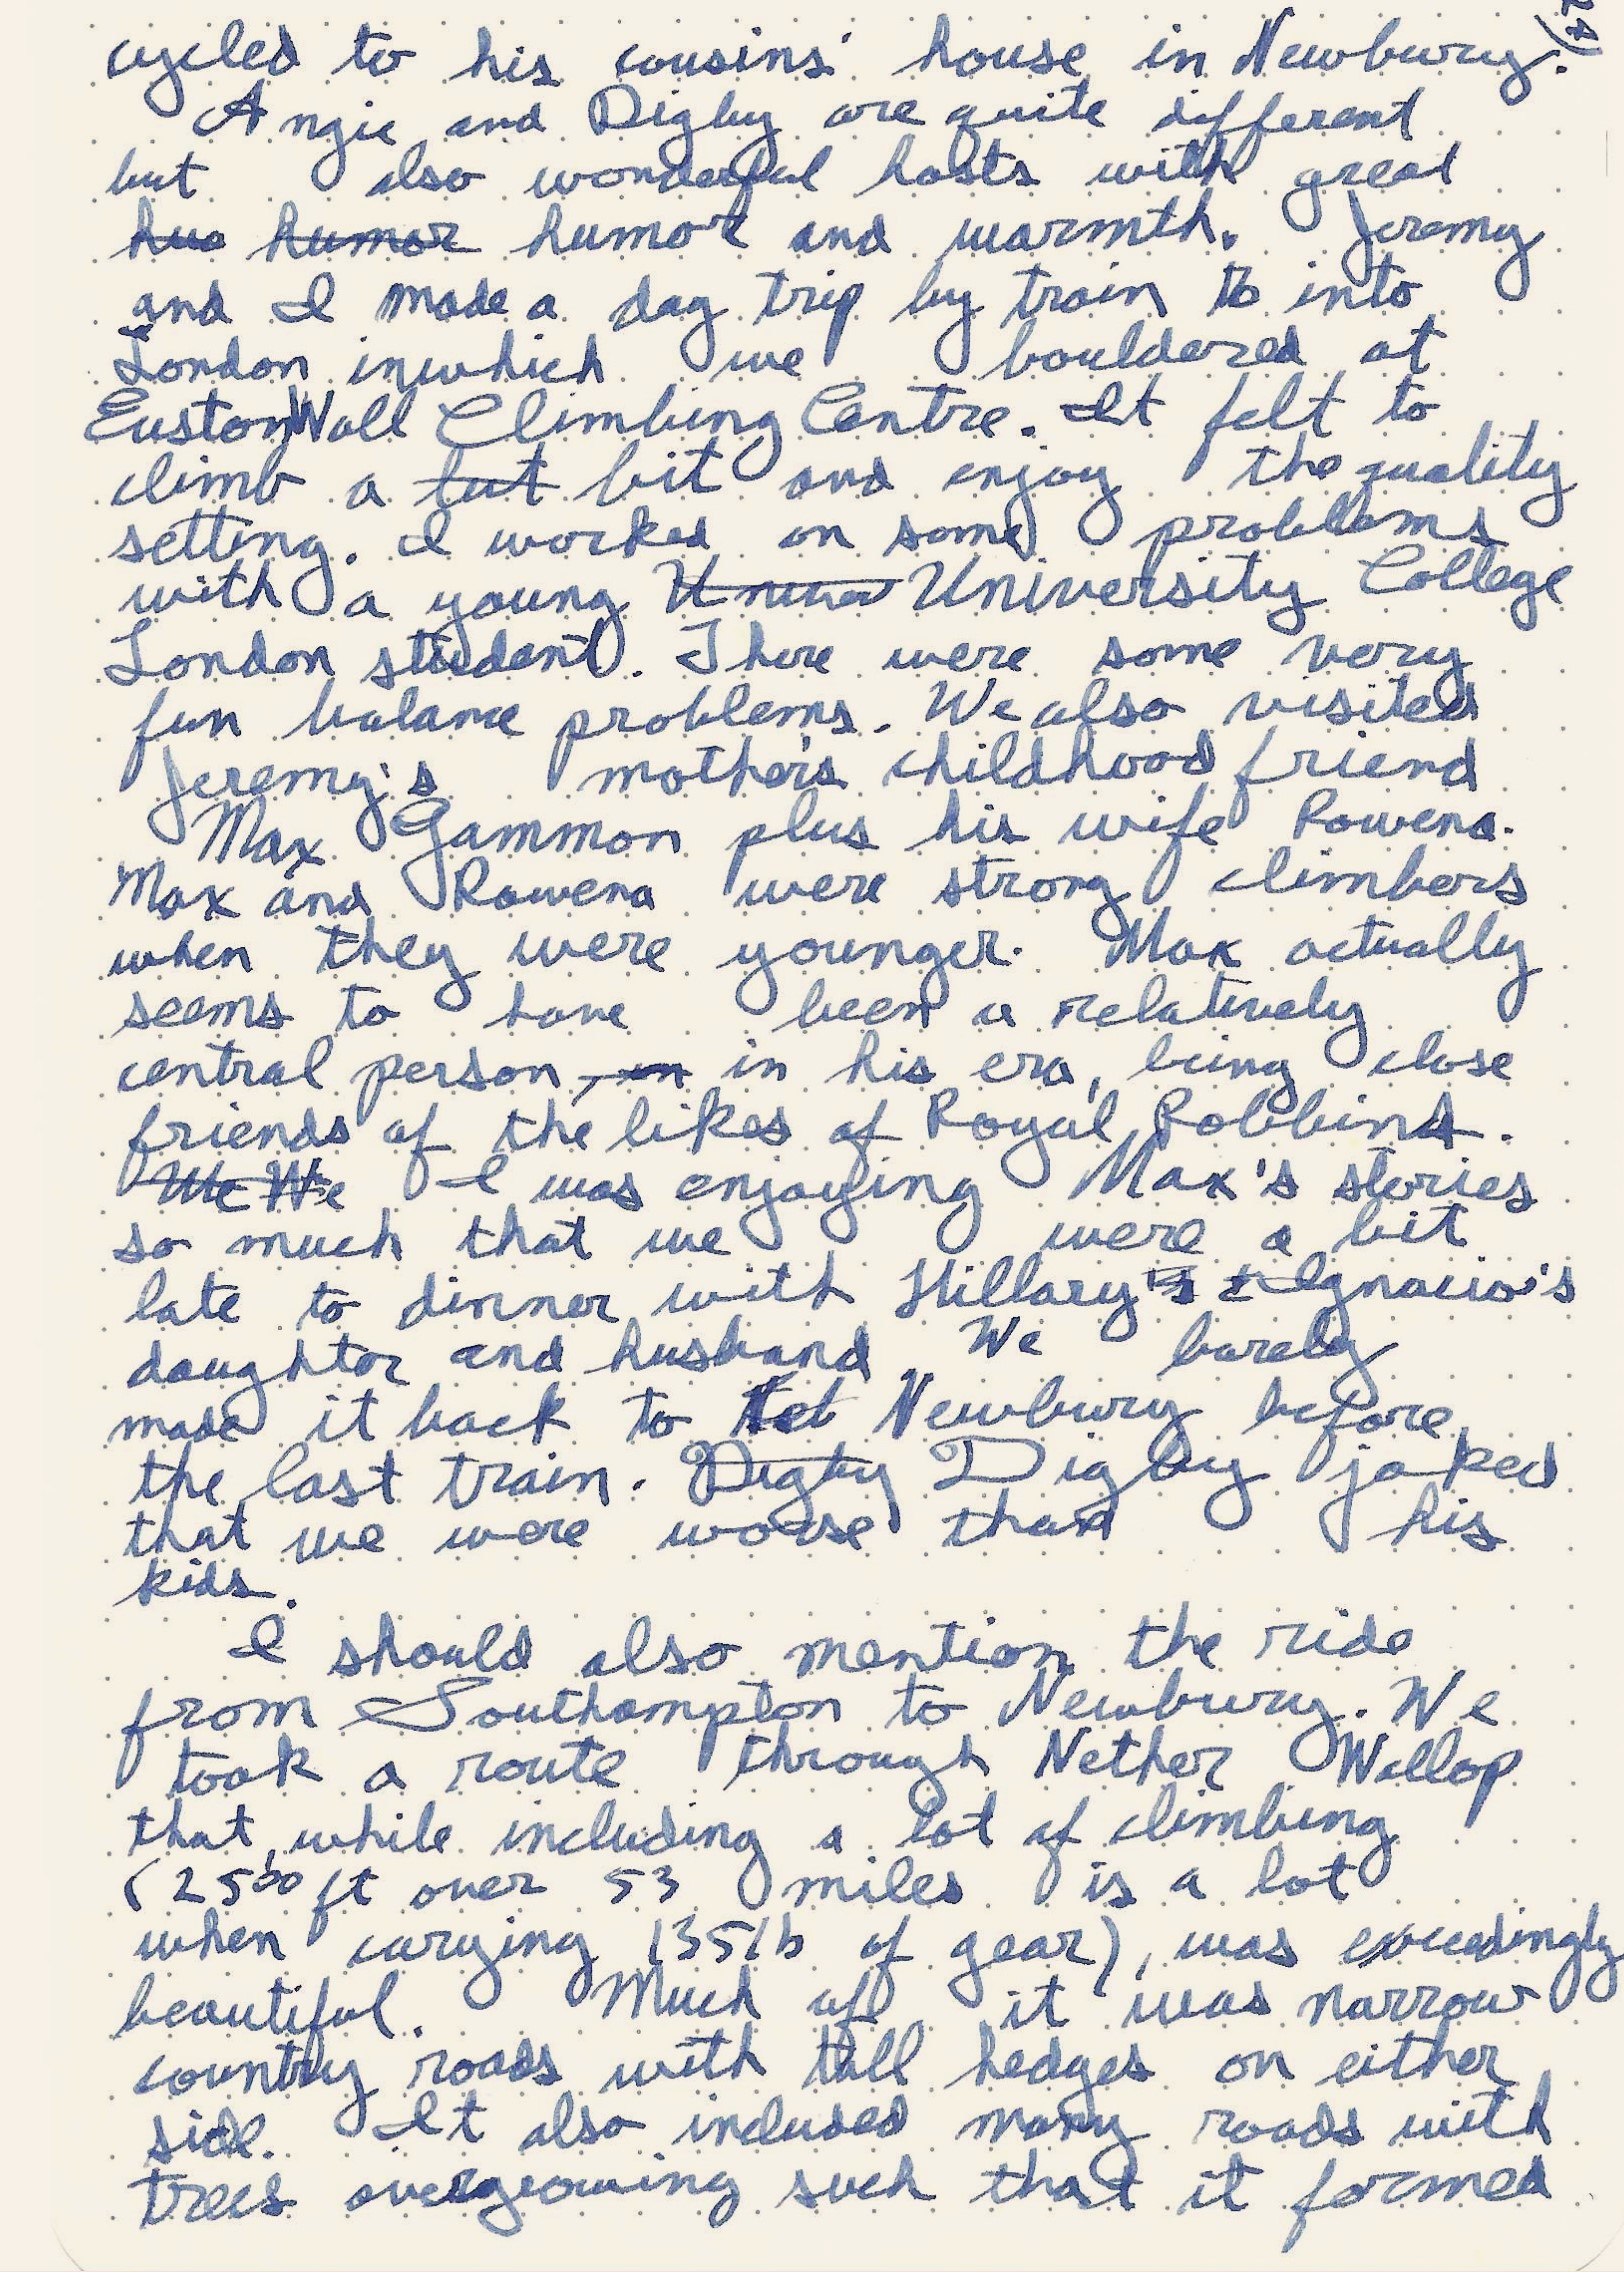 cycled to his cousins' house in Newbury.
Angie and Digby are quite different
but also wonderful hosts with great
huo humor humor and warmth. Jeremy
and I made a day trip by train to into
London in which we bouldered at
Euston Wall Climbing Centre. It felt to
climb a but bit and enjoy the quality
setting. I worked on some problems
with a young University College
London student. There were some very
fun balance problems. We also visited
Jeremy's mother's childhood friend
Max Gammon plus his wife Rowena.
Max and Rowena were strong climbers
when they were younger. Max actually
seems to have been a relatively
central person, in in his era, being close
friends of the likes of Royal Robbins.
We We I was enjoying Max's stories
so much that we were a bit
late to dinner with Hillary's & Ignacio's
daughter and husband. We barely
made it back to Newbury before
the last train. Digby Digby joked
that we were worse than his
kids.
I should also mention the ride
from Southampton to Newbury. We
took a route through Nether Wallop
that, while including a lot of climbing
(2500 ft over 53 miles is a lot
when carying 135lb of gear), was exceedingly
beautiful. Much of it was narrow
country roads with tall hedges on either
side. It also included many roads with
trees overgrowing such that it formed